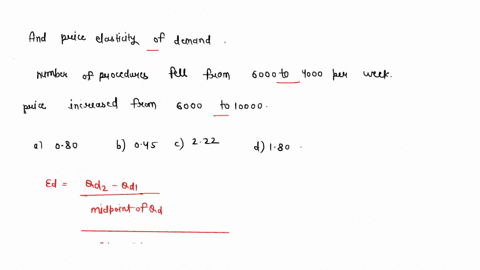 And price elasticity of demand.
Number of procedures fell from 6000 to 4000 per week.
price increased from 6000 to 10000.
a) 0.80 b) 0.45 c) 2.22 d) 1.80.
Ed = Qd2 - Qd1
midpoint of Qd